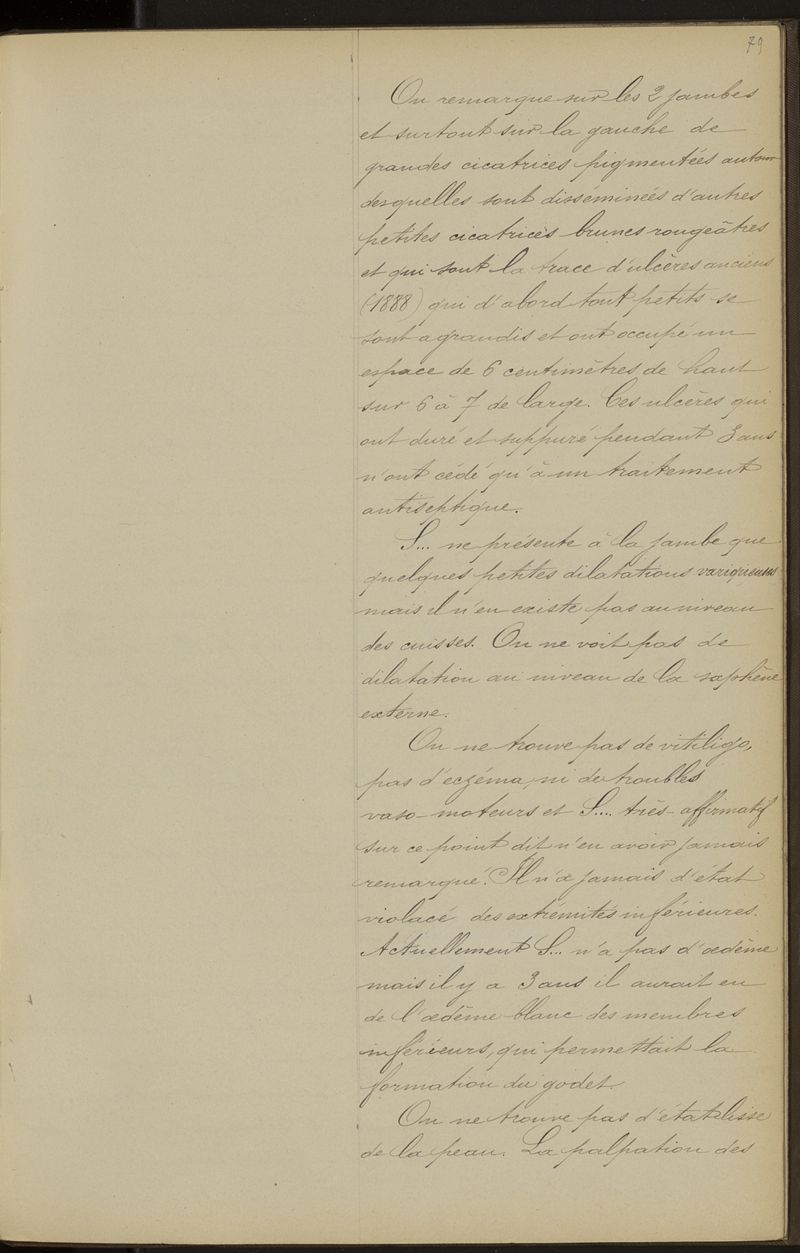 79
On remarque sur les 2 jambes
et surtout sur la gauche de
grandes cicatrices pigmentées autour
desquelles sont disséminées d'autres
petites cicatrices brunes rougeâtres
et qui sont la trace d'ulcères anciens
(1888) qui d'abord tout petits se
sont agrandis et ont occupé un
espace de 6 centimètres de haut
sur 6 à 7 de large. Ces ulcères qui
ont duré et suppuré pendant 3 ans
n'ont cédé qu'à un traitement
antiseptique.
S... ne présente à la jambe que
quelques petites dilatations variqueuses
mais il n'en existe pas au niveau
des cuisses. On ne voit pas de
dilatation au niveau de la saphène
externe.
On ne trouve pas de vitiligo,
pas d'eczéma, ni de troubles
vaso-moteurs et S.... très-affirmatif
sur ce point dit n'en avoir jamais
remarqué. Il n'a jamais d'état
violacé des extrémités inférieures.
Actuellement S... n'a pas d'oedème
mais il y a 3 ans il aurait eu
de l'oedème blanc des membres
inférieurs, qui permettait la
formation du godet.
On ne trouve pas d'état lisse
de la peau. La palpation des